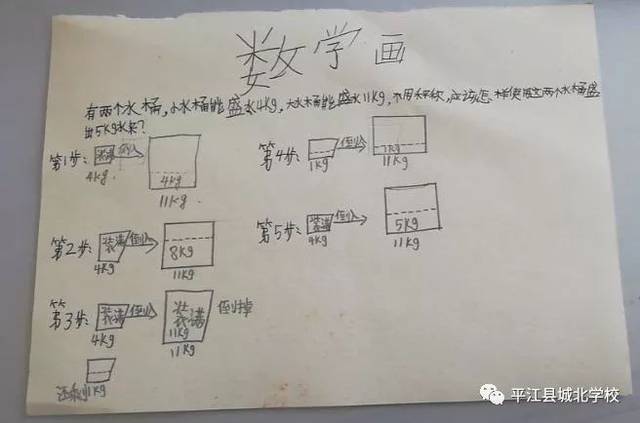 数学画
有两个水桶,小水桶能盛水4kg,大水桶能盛水11kg,不用秤称,应该怎样使用这两个水桶盛
出5kg水来?
第1步: 装满 倒入 4kg
4kg. 11kg.
第2步: 装满 倒入 8kg
4kg 11kg
第3步: 装满 倒入 装满 11kg 倒掉
4kg 11kg
还剩1kg
第4步: 倒入 1kg
1kg 11kg
第5步: 装满 倒入 5kg
4kg 11kg
平江县城北学校